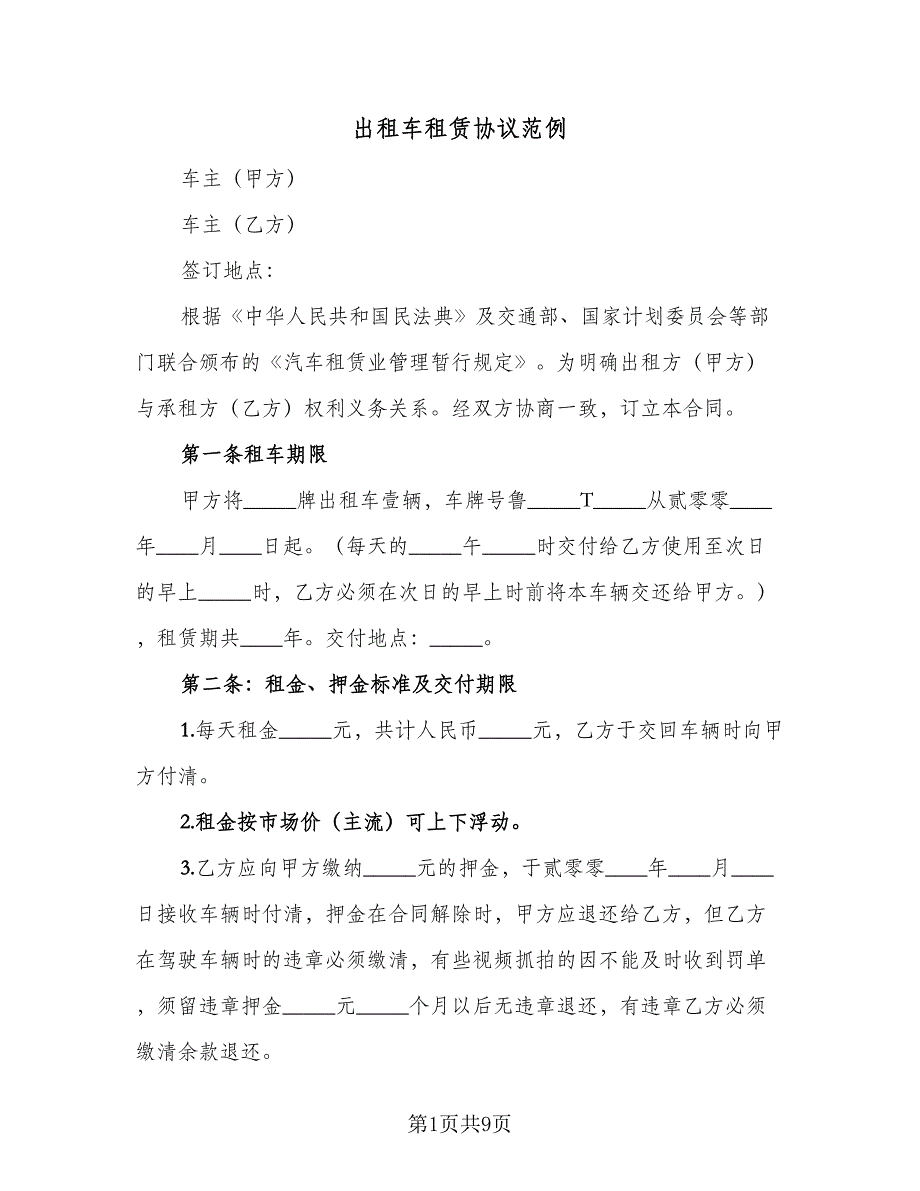 出租车租赁协议范例
车主（甲方）
车主（乙方）
签订地点：
根据《中华人民共和国民法典》及交通部、国家计划委员会等部
门联合颁布的《汽车租赁业管理暂行规定》。为明确出租方（甲方）
与承租方（乙方）权利义务关系。经双方协商一致，订立本合同。
第一条租车期限
甲方将_____牌出租车壹辆，车牌号鲁_____T_____从贰零零____
年____月____日起。（每天的_____午_____时交付给乙方使用至次日
的早上_____时，乙方必须在次日的早上时前将本车辆交还给甲方。）
，租赁期共____年。交付地点：_____。
第二条：租金、押金标准及交付期限
1.每天租金_____元，共计人民币_____元，乙方于交回车辆时向甲
方付清。
2.租金按市场价（主流）可上下浮动。
3.乙方应向甲方缴纳_____元的押金，于贰零零____年____月____
日接收车辆时付清，押金在合同解除时，甲方应退还给乙方，但乙方
在驾驶车辆时的违章必须缴清，有些视频抓拍的因不能及时收到罚单
，须留违章押金_____元_____个月以后无违章退还，有违章乙方必须
缴清余款退还。
第1页共9页